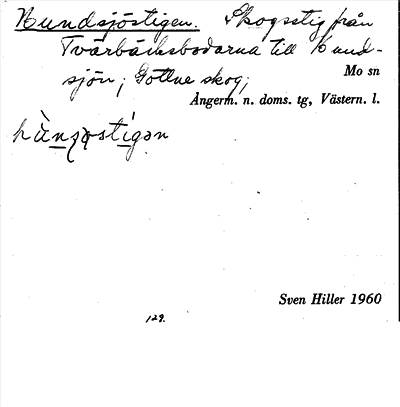 Hundsjöstigen. Skogsstig från
Tvärbäcksbodarna till Hund-
sjön; Gottne skog;
Mo sn
Ångerm. n. doms. tg, Västern. l.
Sven Hiller 1960
129.